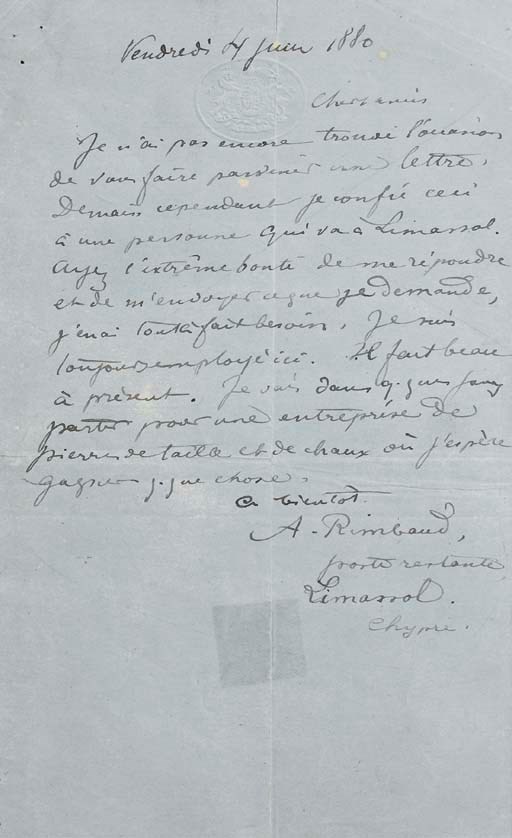 Vendredi 4 juin 1880
Chers amis
Je n'ai pas encore trouvé l'occasion
de vous faire parvenir une lettre.
Demain cependant je confie ceci
à une personne qui va à Limassol.
Ayez l'extrême bonté de me répondre
et de m'envoyer ce que je demande,
j'en ai tout à fait besoin. Je suis
toujours employé ici. Il fait beau
à présent. Je vais dans q.ques jours
partir pour une entreprise de
pierres de taille et de chaux où j'espère
gagner q.que chose.
A bientôt
A. Rimbaud,
poste restante
Limassol.
Chypre.